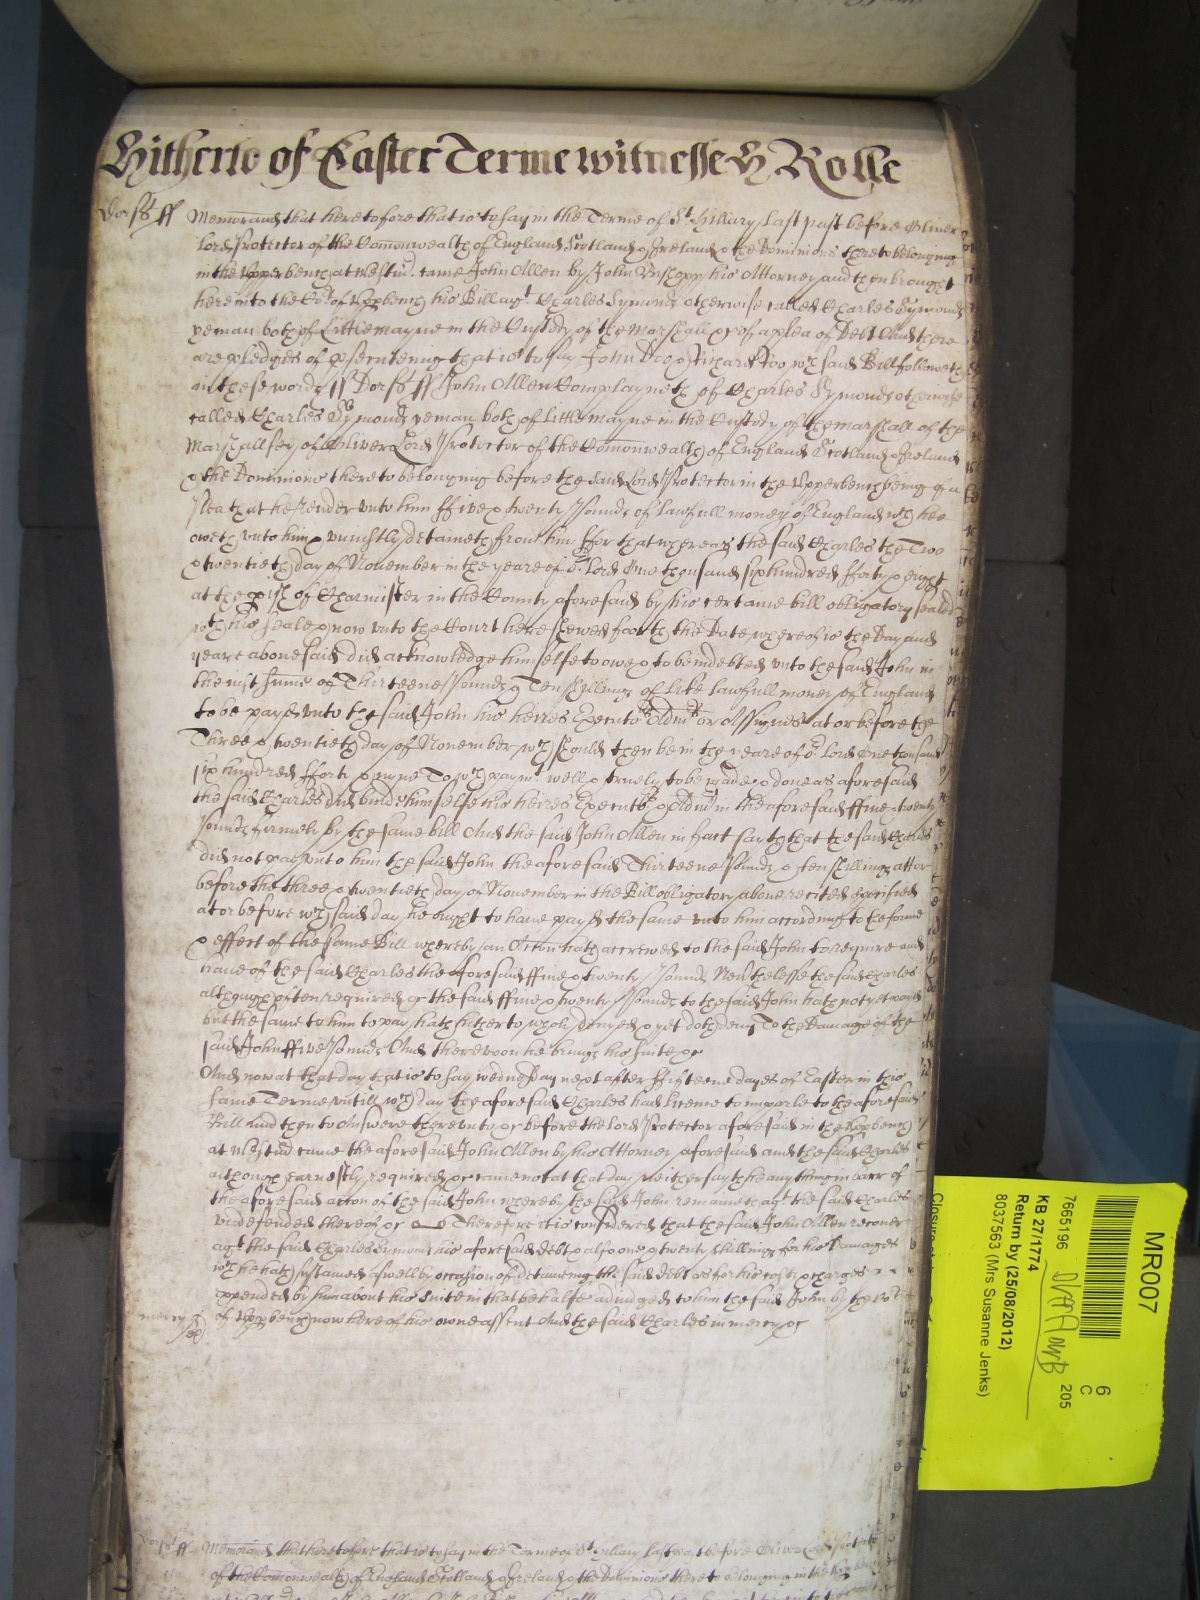 Hitherto of Easter Terme witnesseth Rolle
Dorst ff Memorand that heretofore that is to say in the Terme of St. Hillary last past before Oliver
Lord Protector of the Comonwealth of England Scotland & Ireland & the Dominions thereto belonging
in the Upper bench at Westm. came John Allen by John his Attorney and then brought
here into the Cot. of Uppbench his Bill agt. Charles Symonds otherwise called Charles Symonds
yeman both of Littlemayne in the Custody of the Marshall &c of a plea of Debt And there
are pledges of psecuteing that is to say John Doo & Richard Roo wch said Bill followeth
in these words ss Dorst ss John Allen Complayneth of Charles Symonds otherwise
called Charles Symonds yeman both of Littlemayne in the Custody of the marshall of the
Marshallsey of Oliver Lord Protector of the Comonwealth of England Scotland & Ireland
& the Dominions thereto belonging before the said Lord Protector in the Upperbench being of a
Plea that he render unto him ffive & twenty Pounds of lawfull money of England wch hee
oweth unto him & uniustly detaineth from him ffor that whereas the said Charles the Two
& twentieth day of November in the yeare of or. Lord One thousand six hundred fforty & eight
at the pish of Charmister in the County aforesaid by his certaine bill obligatory sealed
wth his seale & now unto the Court here shewed forth the Date whereof is the Day and
yeare abovesaid did acknowledge himselfe to owe & to be indebted unto the said John in
the iust summe of Thirteene Pounds & Ten shillings of like lawfull money of England
to be payd unto the said John his heires Executors Admrs or Assignes at or before the
Three & twentieth day of November wch should then be in the yeare of or. Lord One thousand
six hundred fforty & nyne To wch paymt. well & truely to be made & done as aforesaid
the said Charles did binde himselfe his heires Executrs & Admrs in the aforesaid ffive & twenty
Pounds firmely by the same bill And the said John Allen in fact saith that the said Charles
did not pay unto him the said John the aforesaid Thirteene Pounds & ten shillings att or
before the three & twentieth day of November in the Bill obligatory above recited specified
at or before wch said day he ought to have payd the same unto him according to the forme
& effect of the same Bill whereby an Action hath accrewed to the said John to require and
have of the said Charles the aforesaid ffive & twenty Pounds Nevthelesse the said Charles
although often required &c the said ffive & twenty Pounds to the said John hath not yet payd
but the same to him to pay hath hitherto wholy denyed & yet doth deny To the Damage of the
said John ffive Pounds And thereupon he brings his suite &c
And now at that day that is to say wednesday next after ffifteene dayes of Easter in this
same Terme untill wch day the aforesaid Charles had licence to imparle to the aforesaid
Bill and then to Answere thereunto &c before the Lord Protector aforesaid in the Uppbench
at Westm came the aforesaid John Allen by his Attorney aforesaid and the said Charles
although earnestly required &c came not at that day Neither say the any thing in barr of
the aforesaid action of the said John whereby the said John remaineth agt. the said Charles
undefended thereof &c Therefore it is considered that the said John Allen recover
agt. the said Charles Symonds his aforesaid debt & also one & twenty shillings for his Damages
wch he hath susteined aswell by occasion of deteining the said debt as for his costs & charges
expended by him about his suite in that behalfe adiudged to him the said John by the Cot
mercy of Uppbench now here of his owne assent And the said Charles in mercy &c
Dorst ff Memorand that heretofore that is to say in the Terme of St. Hillary last past before Oliver Lord Protector
of the Comonwealth of England Scotland & Ireland & the Dominions thereto belonging in the
MR007
6
C
7665196
205
KB 27/1774
Return by (25/08/2012)
8037563 (Mrs Susanne Jenks)